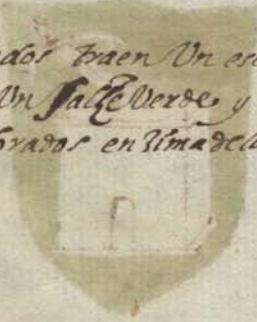 dos traen Un es
Un salze Verde y
brados en zima del